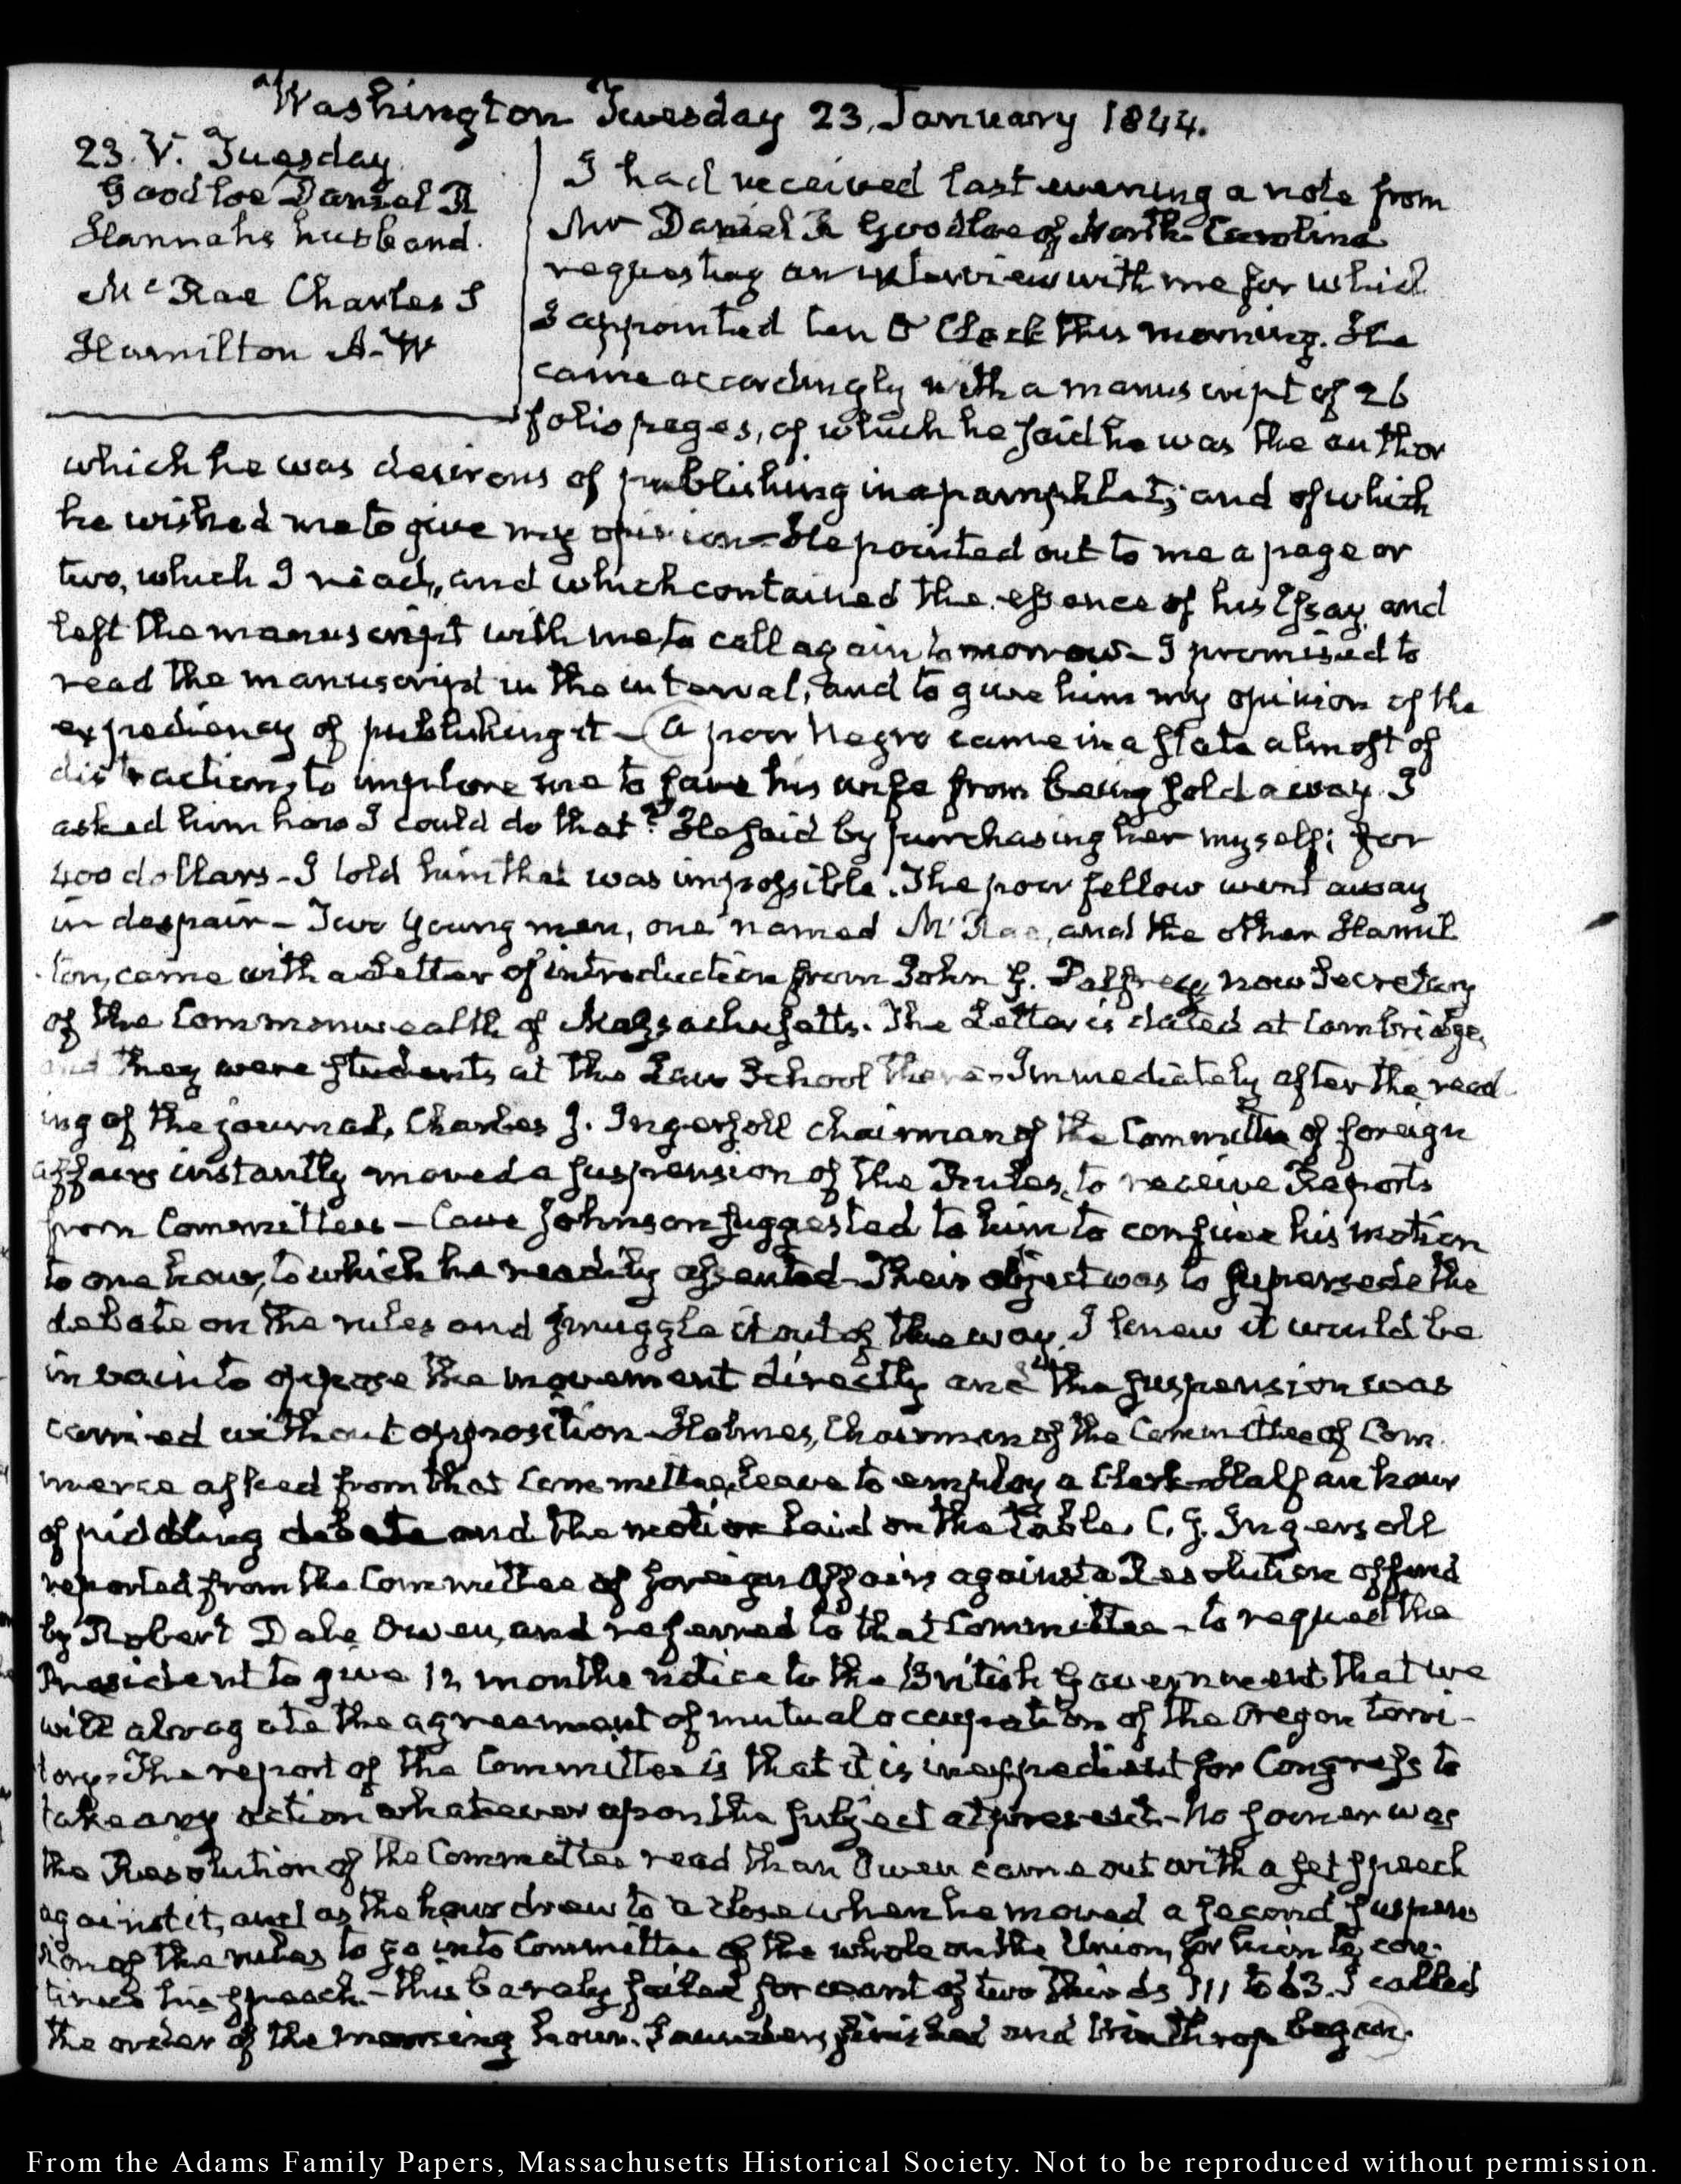 Washington Tuesday 23. January 1844.
23. V. Tuesday
Goodloe Daniel R
Hannahs husband.
McRae Charles S
Hamilton A. W
I had received last evening a note from
Mr Daniel R Goodloe of North-Carolina
requesting an interview with me for which
I appointed ten O'Clock this morning. He
came accordingly with a manuscript of 26
folio pages, of which he said he was the author
which he was desirous of publishing in a pamphlet; and of which
he wished me to give my opinion—He pointed out to me a page or
two, which I read, and which contained the essence of his Essay, and
left the manuscript with me, to call again tomorrow—I promised to
read the manuscript in the interval, and to give him my opinion of the
expediency of publishing it—A poor negro came in a state almost of
distraction, to implore me to save his wife from being sold away. I
asked him how I could do that? He said by purchasing her myself; for
400 dollars—I told him that was impossible. The poor fellow went away
in despair—Two young men, one named McRae, and the other Hamil
ton, came with a Letter of introduction from John G. Palfrey now Secretary
of the Commonwealth of Massachusetts. The Letter is dated at Cambridge,
and they were students at the Law School there—Immediately after the read
ing of the journal, Charles J. Ingersoll chairman of the Committee of foreign
affairs instantly moved a suspension of the Rules, to receive Reports
from Committees—Cave Johnson suggested to him to confine his motion
to one hour, to which he readily assented—Their object was to supersede the
debate on the rules and smuggle it out of the way. I knew it would be
in vain to oppose the movement directly and the suspension was
carried without opposition—Holmes, Chairman of the Committee of Com
merce asked from that Committee, leave to employ a Clerk—Half an hour
of piddling debate and the motion laid on the table. C. J. Ingersoll
reported from the Committee of foreign Affairs against a Resolution offered
by Robert Dale Owen, and referred to that Committee—to request the
President to give 12 months notice to the British Government that we
will abrogate the agreement of mutual occupation of the Oregon terri-
tory—The report of the Committee is that it is inexpedient for Congress to
take any action whatever upon the subject at present—No sooner was
the Resolution of the Committee read than Owen came out with a set speech
against it, and as the hour drew to a close when he moved a second suspen
sion of the rules to go into Committee of the whole on the Union, for him to con-
tinue his speech—this barely failed for want of two thirds 111 to 63. I called
the order of the morning hour. Saunders finished and Winthrop began.
From the Adams Family Papers, Massachusetts Historical Society. Not to be reproduced without permission.